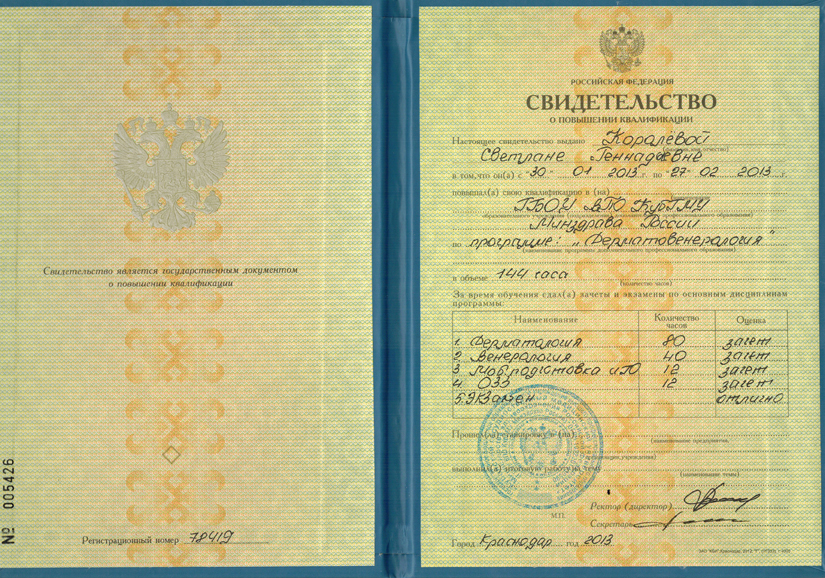 Свидетельство является государственным документом
о повышении квалификации
№ 005426
Регистрационный номер 78419
РОССИЙСКАЯ ФЕДЕРАЦИЯ
СВИДЕТЕЛЬСТВО
О ПОВЫШЕНИИ КВАЛИФИКАЦИИ
Настоящее свидетельство выдано Коралёвой
(фамилия, имя, отчество)
Светлане Геннадьевне
в том, что он(а) с "30" 01 2013 г. по "27" 02 2013 г.
повышал(а) свою квалификацию в (на)
ГБОУ ВПО КубГМУ
образовательного учреждения (подразделения) дополнительного профессионального образования)
Минздрава России
по программе: „Дерматовенералогия"
(наименование программы дополнительного профессионального образования)
в объеме 144 часа
(количество часов)
За время обучения сдал(а) зачеты и экзамены по основным дисциплинам
программы:
Наименование Количество часов Оценка
1. Дерматалогия 80 зачет
2. Венералогия 40 зачет
3 Моб.подготовка и ГО 12 зачет
4 ОЗЗ 12 зачет
5. Экзамен отлично
Прошел(ла) стажировку в (на)
(наименование предприятия,
организации, учреждения)
выполнил(а) итоговую работу на тему
(наименование темы)
Ректор (директор)
М.П.
Секретарь
Город Краснодар год 2013